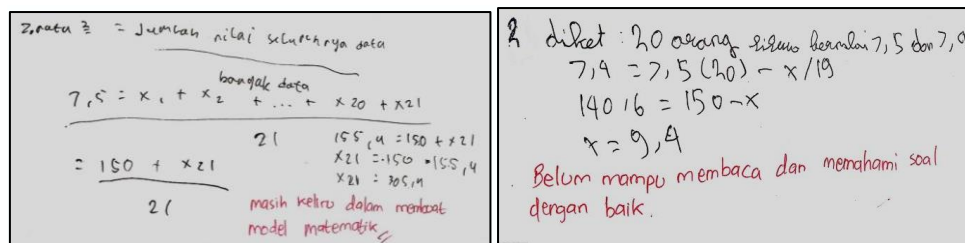 2. rata² = Jumlah nilai seluruhnya data
banyak data
7,5 = x1 + x2 + ... + x20 + x21
21
= 150 + x21
21
155,4 = 150 + x21
x21 = -150 + 155,4
x21 = 305,4
masih keliru dalam membuat
model matematik
2 diket : 20 orang siswa bernilai 7,5 dan 7,
7,4 = 7,5 (20) - x/19
140,6 = 150 - x
x = 9,4
Belum mampu membaca dan memahami soal
dengan baik.